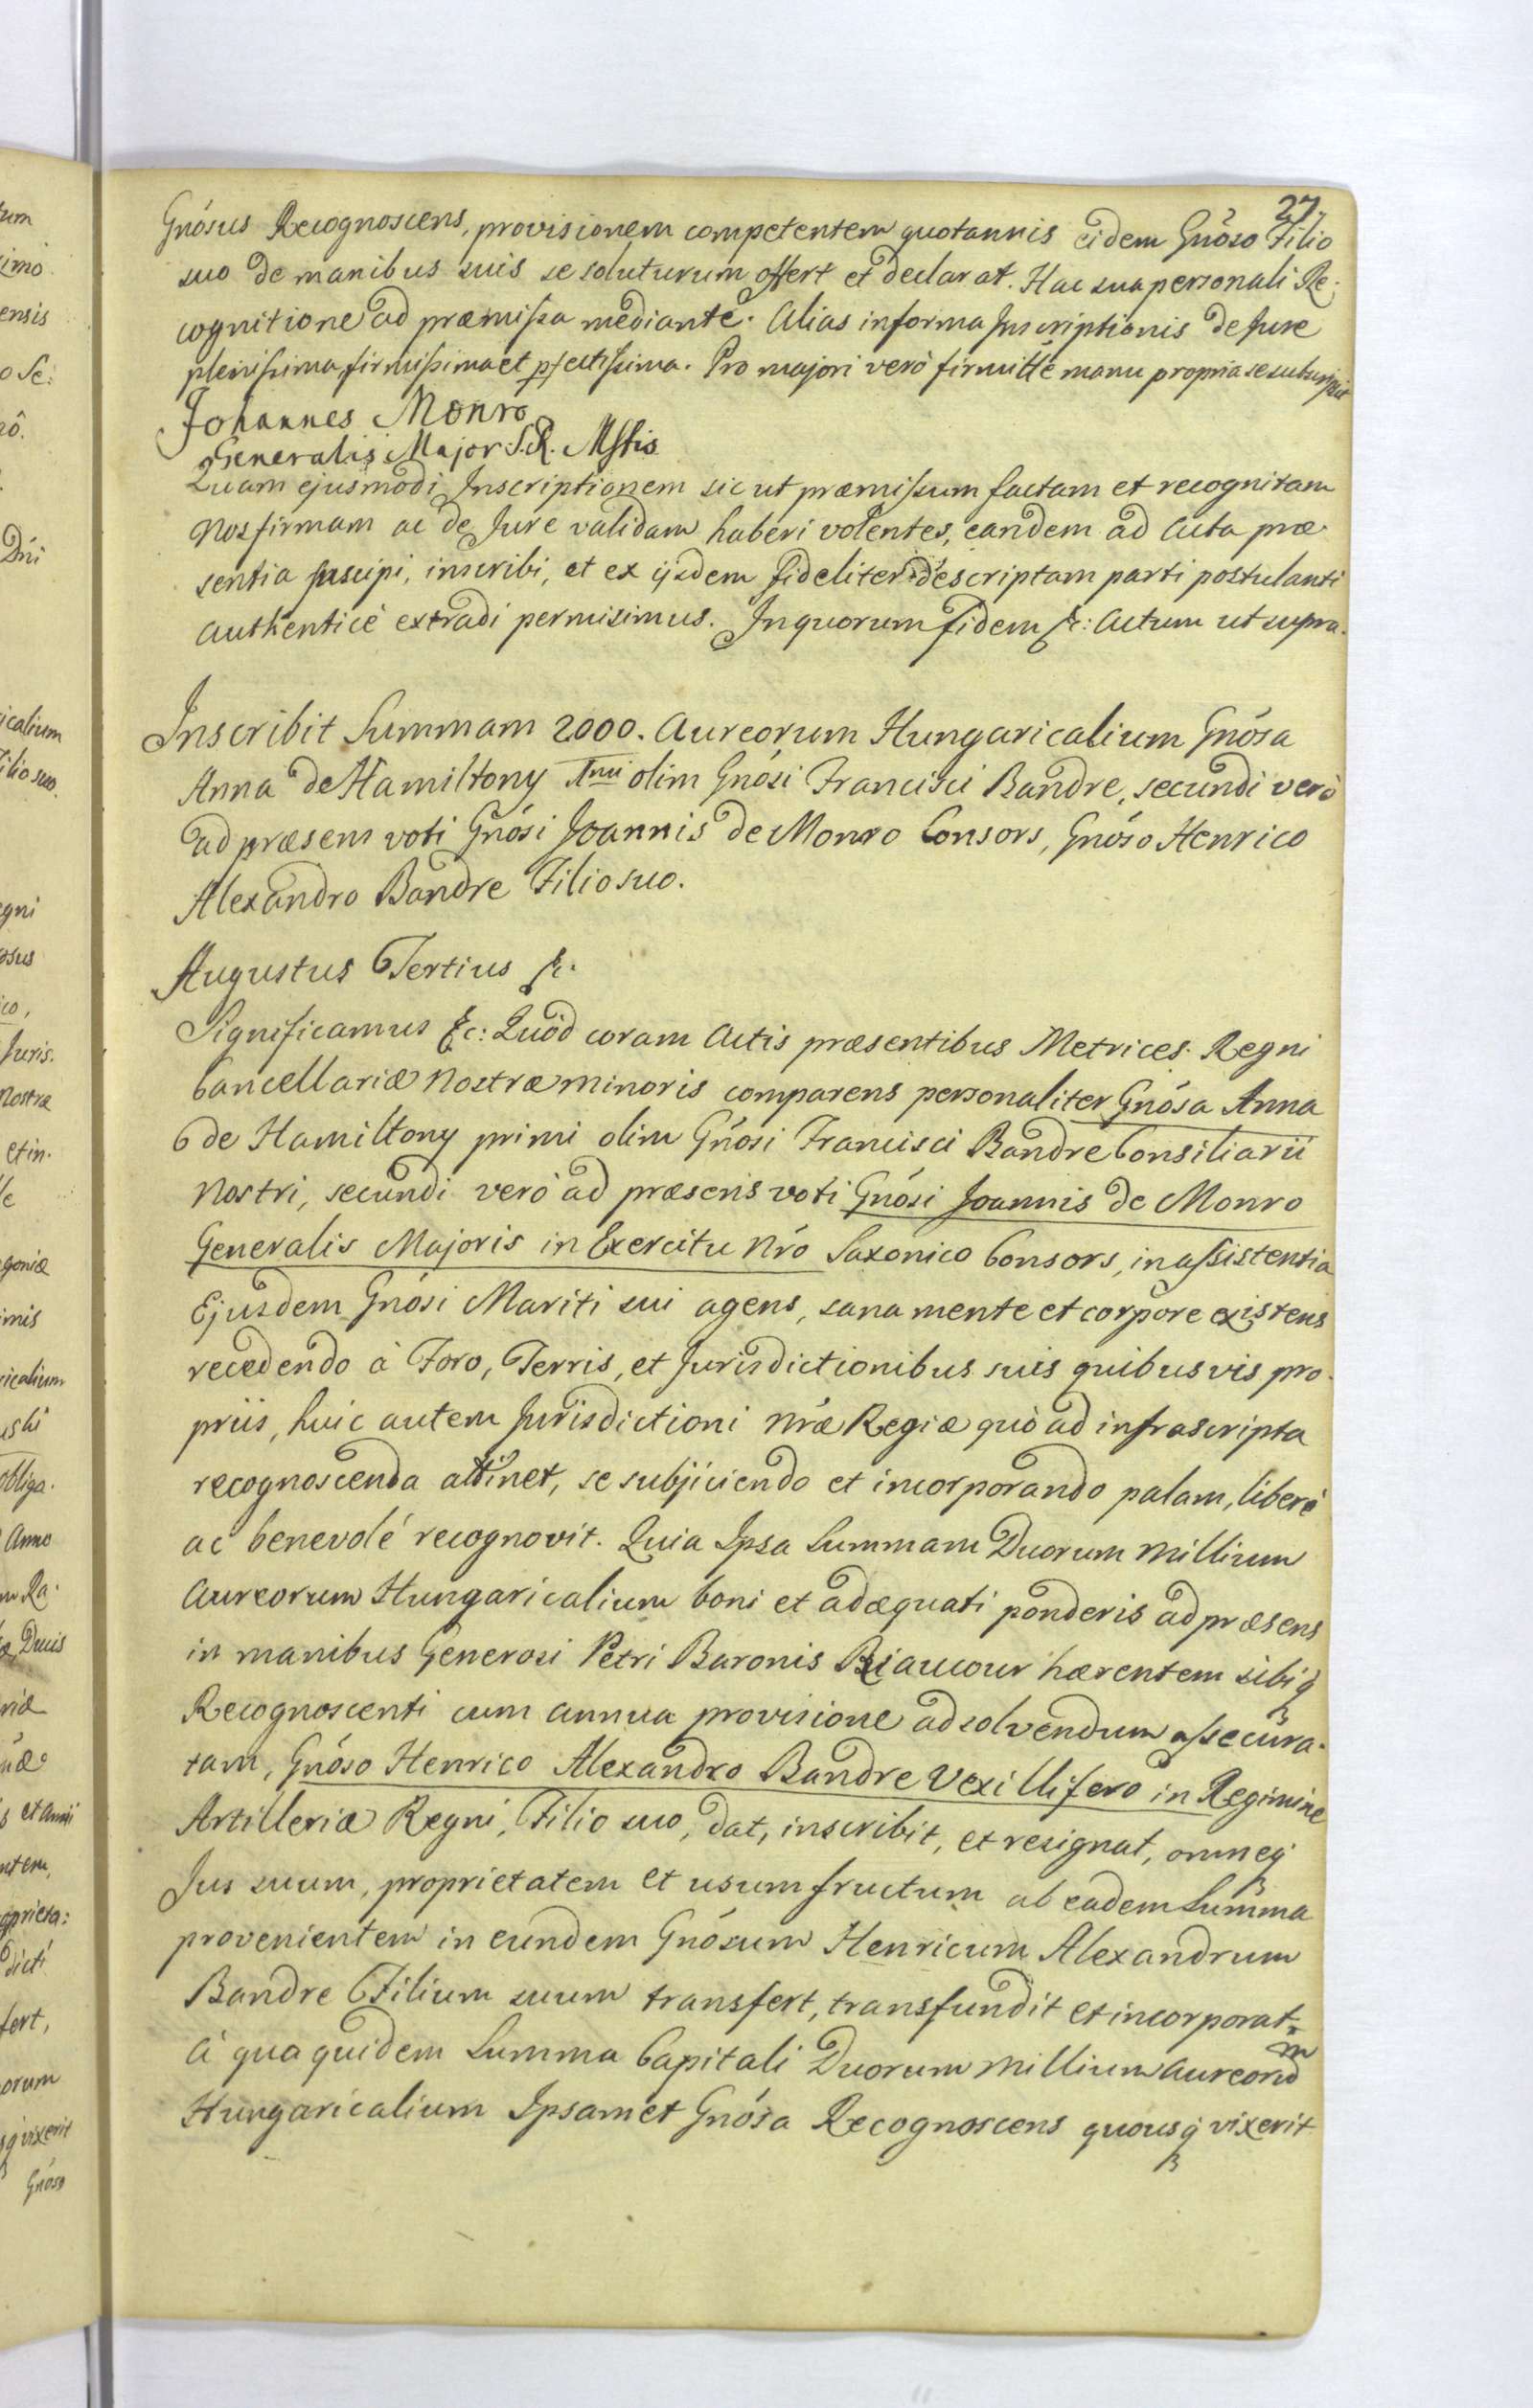 27.
Gnósus Recognoscens, provisionem competentem quotannis eidem Gnóso Filio
suo de manibus suis se soluturum offert et declarat. Hac sua personali Re-
cognitione ad præmissa mediante. Alias in forma Inscriptionis de Jure
plenissima, firmissima et pfectissima. Pro majori verò firmitte manu propria se subscripsit
Johannes Monro
Generalis Major S. R. Mstis
Quam ejusmodi Inscriptionem sic ut præmissum factam et recognitam
Nos firmam ac de Jure validam haberi volentes, eandem ad Acta præ-
sentia suscipi, inscribi, et ex ijsdem fideliter descriptam parti postulanti
authenticè extradi permisimus. In quorum fidem &c: Actum ut supra.
Inscribit Summam 2000. Aureorum Hungaricalium Gnósa
Anna de Hamiltony Imi olim Gnósi Francisci Bandre, secundi verò
ad præsens voti Gnósi Joannis de Monro Consors, Gnóso Henrico
Alexandro Bandre Filio suo.
Augustus Tertius &c.
Significamus &c: Quòd coram Actis præsentibus Metrices Regni
Cancellariæ Nostræ Minoris comparens personaliter Gnósa Anna
de Hamiltony primi olim Gnósi Francisci Bandre Consiliarii
Nostri, secundi verò ad præsens voti Gnósi Joannis de Monro
Generalis Majoris in Exercitu Nró Saxonico Consors, in assistentia
Ejusdem Gnósi Mariti sui agens, sana mente et corpore existens
recedendo à Foro, Terris, et Jurisdictionibus suis quibusvis pro-
priis, huic autem Jurisdictioni Nræ Regiæ quò ad infrascripta
recognoscenda attinet, se subjiciendo et incorporando palam, liberè
ac benevolé recognovit. Quia Ipsa Summam Duorum Millium
Aureorum Hungaricalium boni et adæquati ponderis ad præsens
in manibus Generosi Petri Baronis Riaucour hærentem sibiq
Recognoscenti cum annua provisione ad solvendum assecura-
tam, Gnóso Henrico Alexandro Bandre Vexillifero in Regimine
Artilleriæ Regni, Filio suo, dat, inscribit, et resignat, omneq
Jus suum, proprietatem et usumfructum ab eadem Summa
provenientem in eundem Gnósum Henricum Alexandrum
Bandre Filium suum transfert, transfundit et incorporat.
à qua quidem Summa Capitali Duorum Millium Aureorum
Hungaricalium Ipsamet Gnósa Recognoscens quousq vixerit